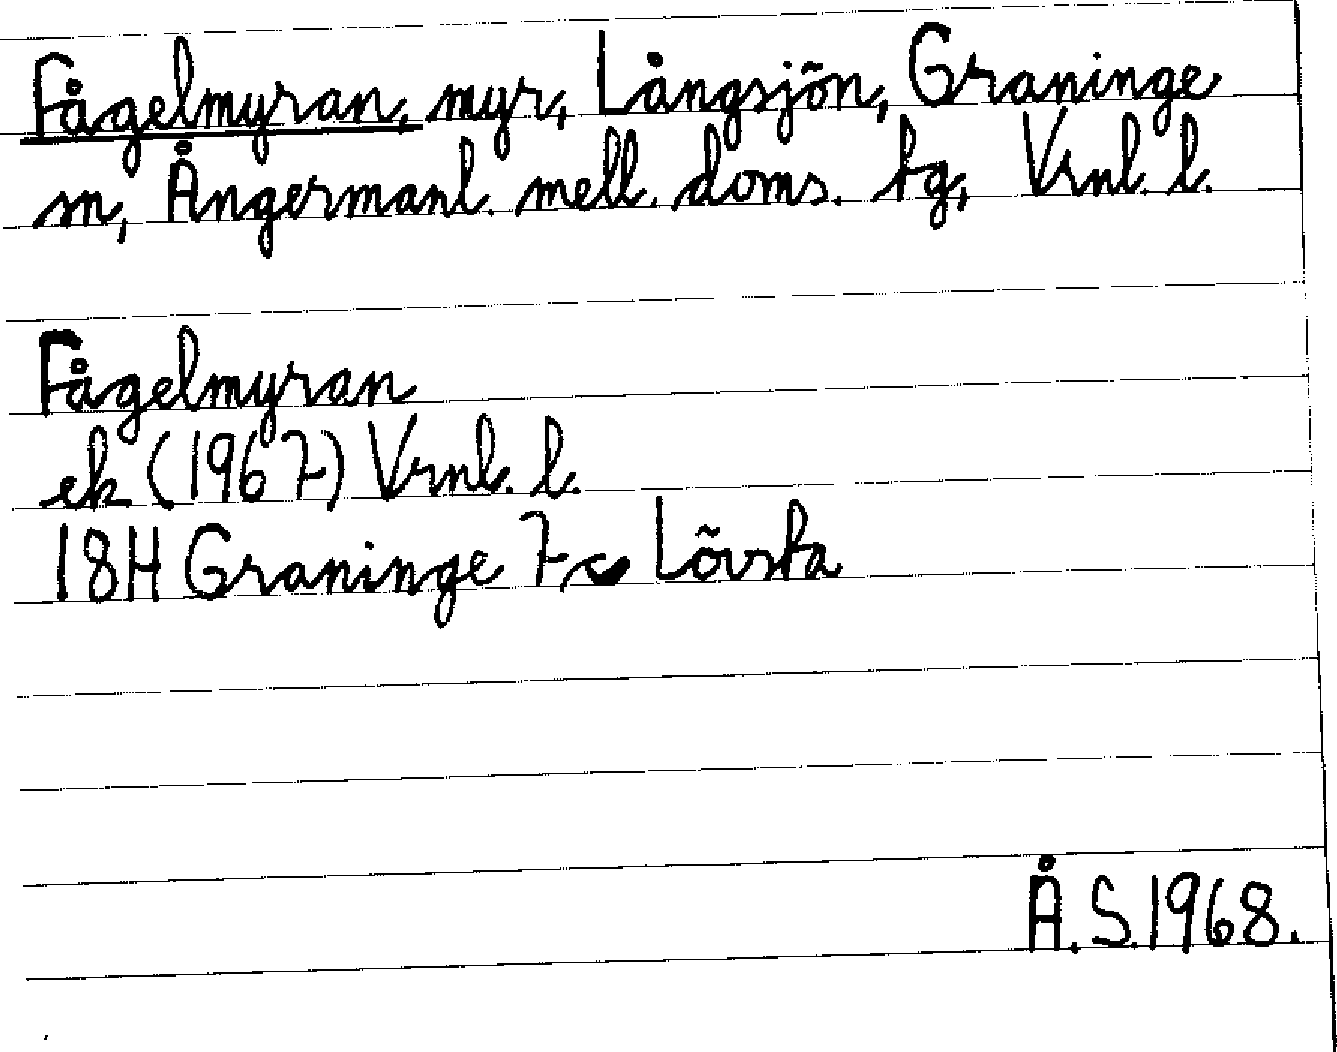 Fågelmyran, myr, Långsjön, Graninge
sn, Ångermanl. mell. doms. tg, Vrnl. l.
Fågelmyran
ek (1967) Vrnl. l.
18H Graninge 7c Lövsta
Å.S.1968.